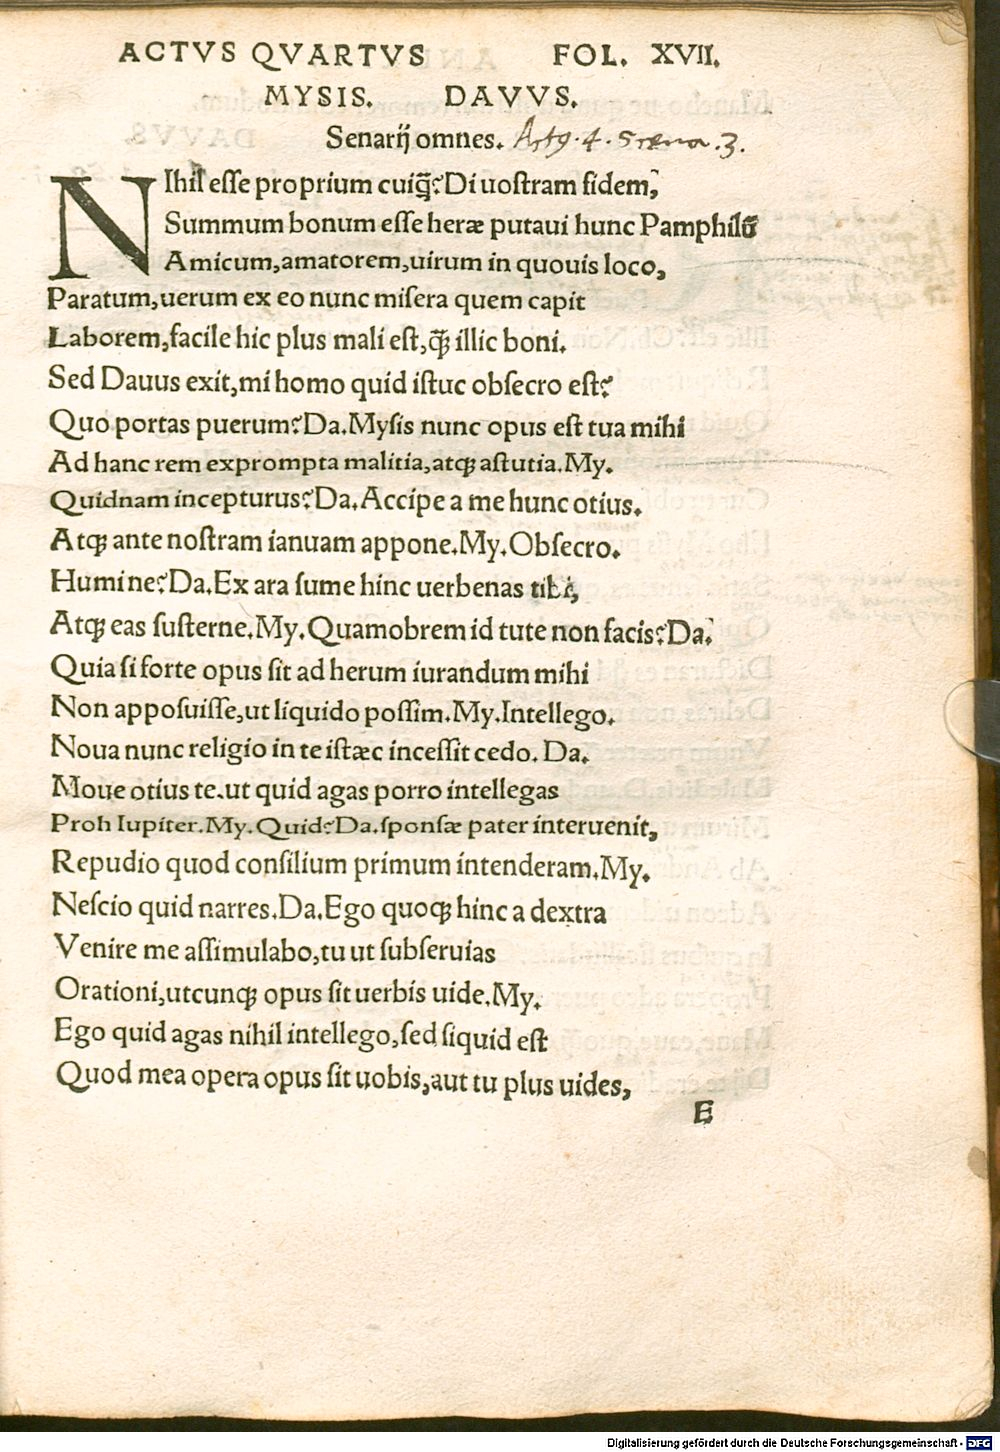 ACTVS QVARTVS FOL. XVII.
MYSIS. DAVVS.
Senarij omnes. Act9. 4. Scena .3.
NIhil esse proprium cuiq̃? Di uostram fidem,
Summum bonum esse heræ putaui hunc Pamphilũ
Amicum, amatorem, uirum in quouis loco,
Paratum, uerum ex eo nunc misera quem capit
Laborem, facile hic plus mali est, q̃ illic boni.
Sed Dauus exit, mi homo quid istuc obsecro est?
Quo portas puerum? Da. Mysis nunc opus est tua mihi
Ad hanc rem exprompta malitia, atqꝫ astutia. My.
Quidnam incepturus? Da. Accipe a me hunc otius.
Atqꝫ ante nostram ianuam appone. My. Obsecro.
Humine? Da. Ex ara sume hinc uerbenas tibi,
Atqꝫ eas susterne. My. Quamobrem id tute non facis? Da.
Quia si forte opus sit ad herum iurandum mihi
Non apposuisse, ut liquido possim. My. Intellego.
Noua nunc religio in te istæc incessit cedo. Da.
Moue otius te. ut quid agas porro intellegas
Proh Iupiter. My. Quid? Da. sponsæ pater interuenit,
Repudio quod consilium primum intenderam. My.
Nescio quid narres. Da. Ego quoqꝫ hinc a dextra
Venire me assimulabo, tu ut subseruias
Orationi, utcunqꝫ opus sit uerbis uide. My.
Ego quid agas nihil intellego, sed siquid est
Quod mea opera opus sit uobis, aut tu plus uides,
E
Digitalisierung gefördert durch die Deutsche Forschungsgemeinschaft - DFG